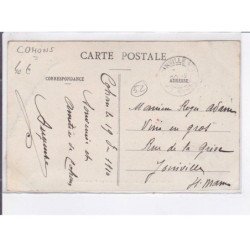 COHONS
CARTE POSTALE
CORRESPONDANCE
ADRESSE
52
Cohons le 19 8 1910
Souvenir de
Cohons
Monsieur Roger Adam
Vins en gros
Rue de la
Joinville
Hte Marne